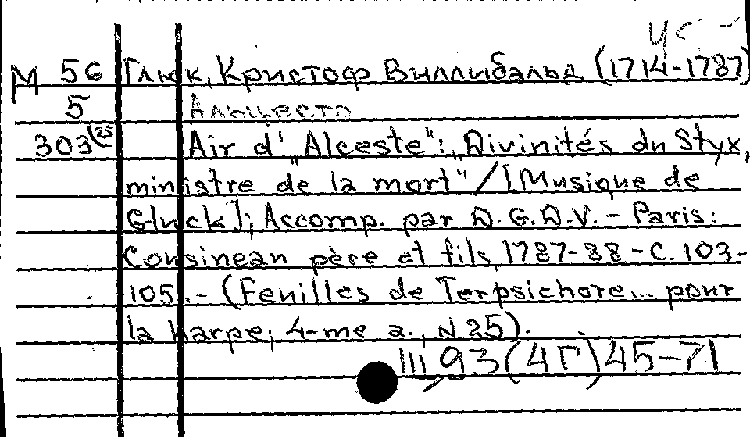 УС -
М 56 Глюк, Кристоф Виллибальд (1714-1787)
5 Альцеста
303(25 Air d' "Alceste": "Divinités du Styx,
ministre de la mort" / [Musique de
Gluck]; Accomp. par D.G.D.V. - Paris:
Cousineau père et fils, 1787-88 - C. 103-
105. - (Feuilles de Terpsichore... pour
la harpe; 4-me a., N 25).
III, 93(4Г)45-71